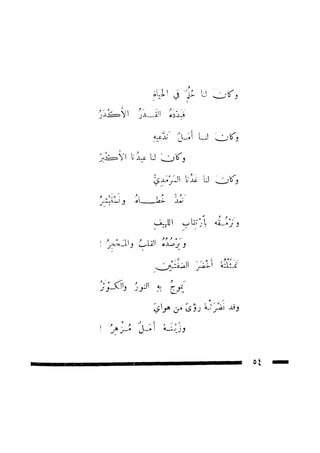 وكان لنا حُلُمٌ في الحياةِ
فبدّدهُ القَـــدَرُ الأكْـدَرُ
وكان لنــا أمَـلٌ ندّعيهِ
وكان لنا عيدُنا الأكبَرُ
وكان لنا غدُنا السَرْمَديّ
نَعُدّ خُطـــاهُ ونَسْتَبْشِرُ
ونَرْمُـقُه بارْتيابِ اللهيفِ
ويَرْصُدُهُ القلبُ والمَحْجِرُ !
تمثّلْتُهُ أخضَرَ الضفّتَينِ
يموجُ بهِ النورُ والكَوْثَرُ
وقد نَضّرَتْـهُ رؤىً من هوايَ
وزيّنَـهُ أمَـلٌ مُـزْهِرُ !
٥٤